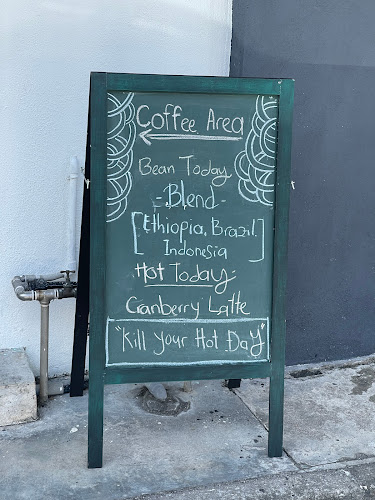 Coffee Area
Bean Today
- Blend -
[Ethiopia, Brazil,
Indonesia]
Hot Today
Cranberry Latte
"Kill your Hot Day"